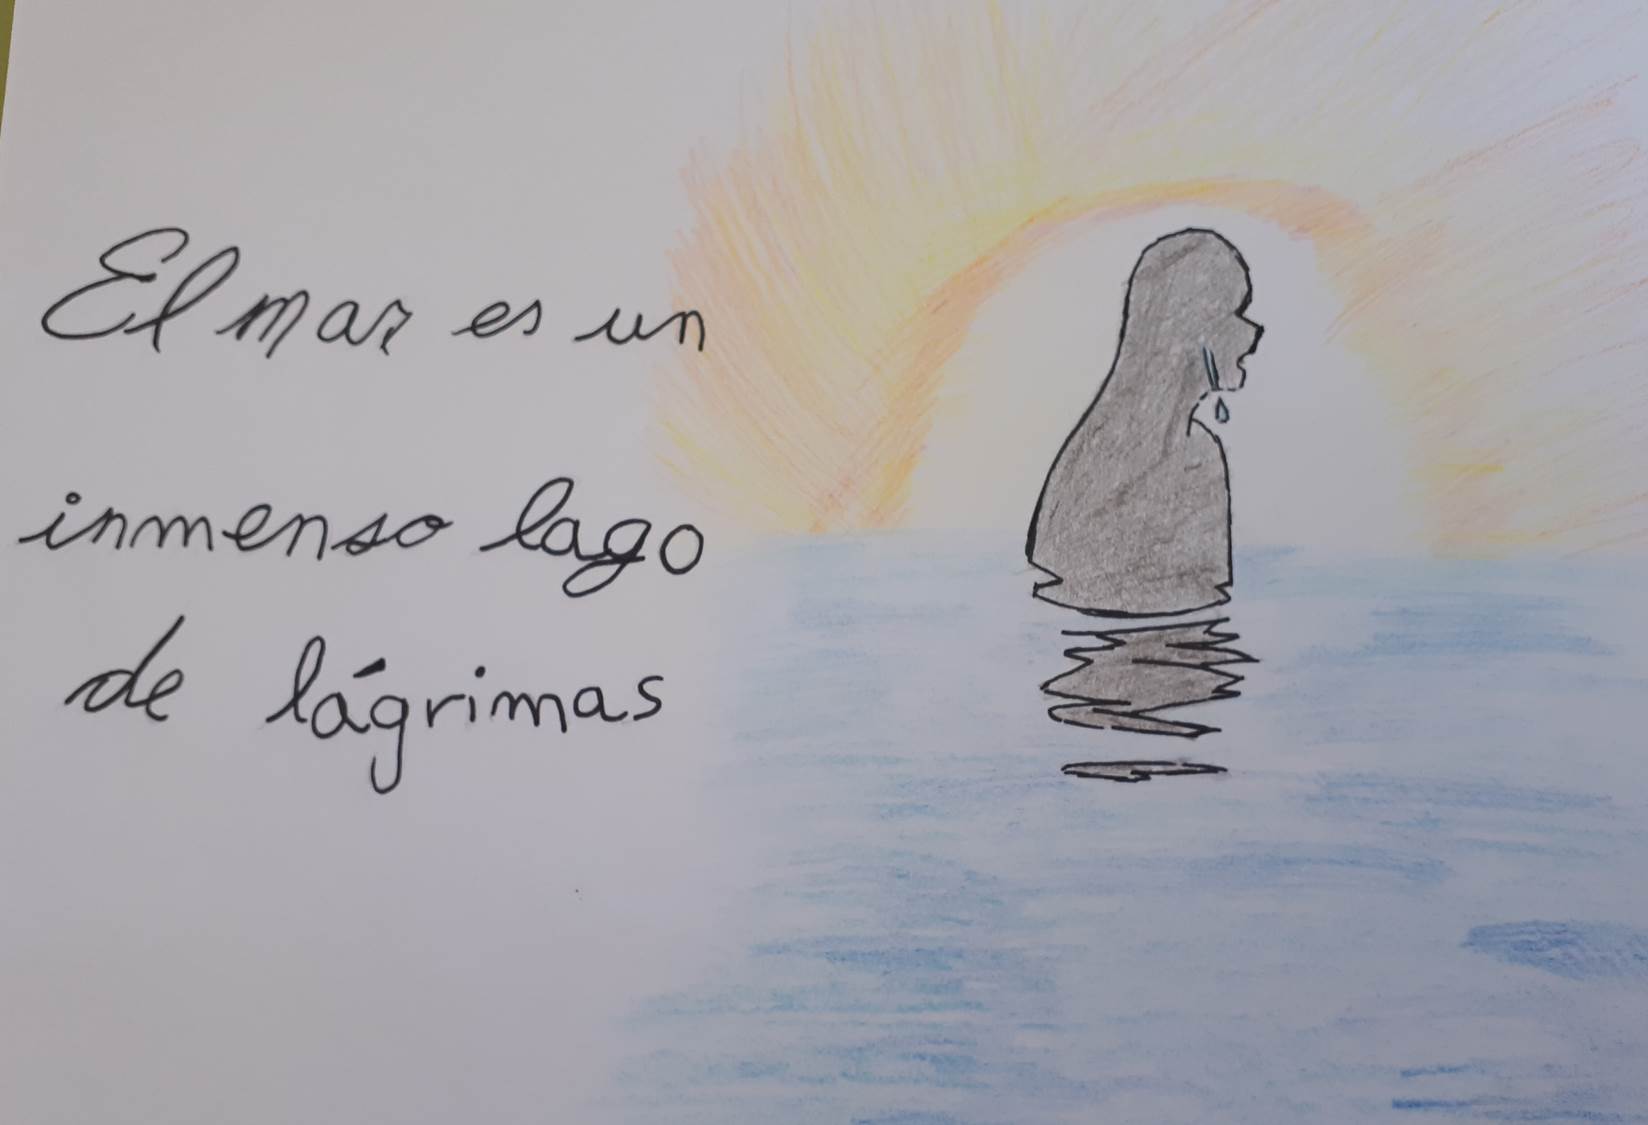 El mar es un
inmenso lago
de lágrimas